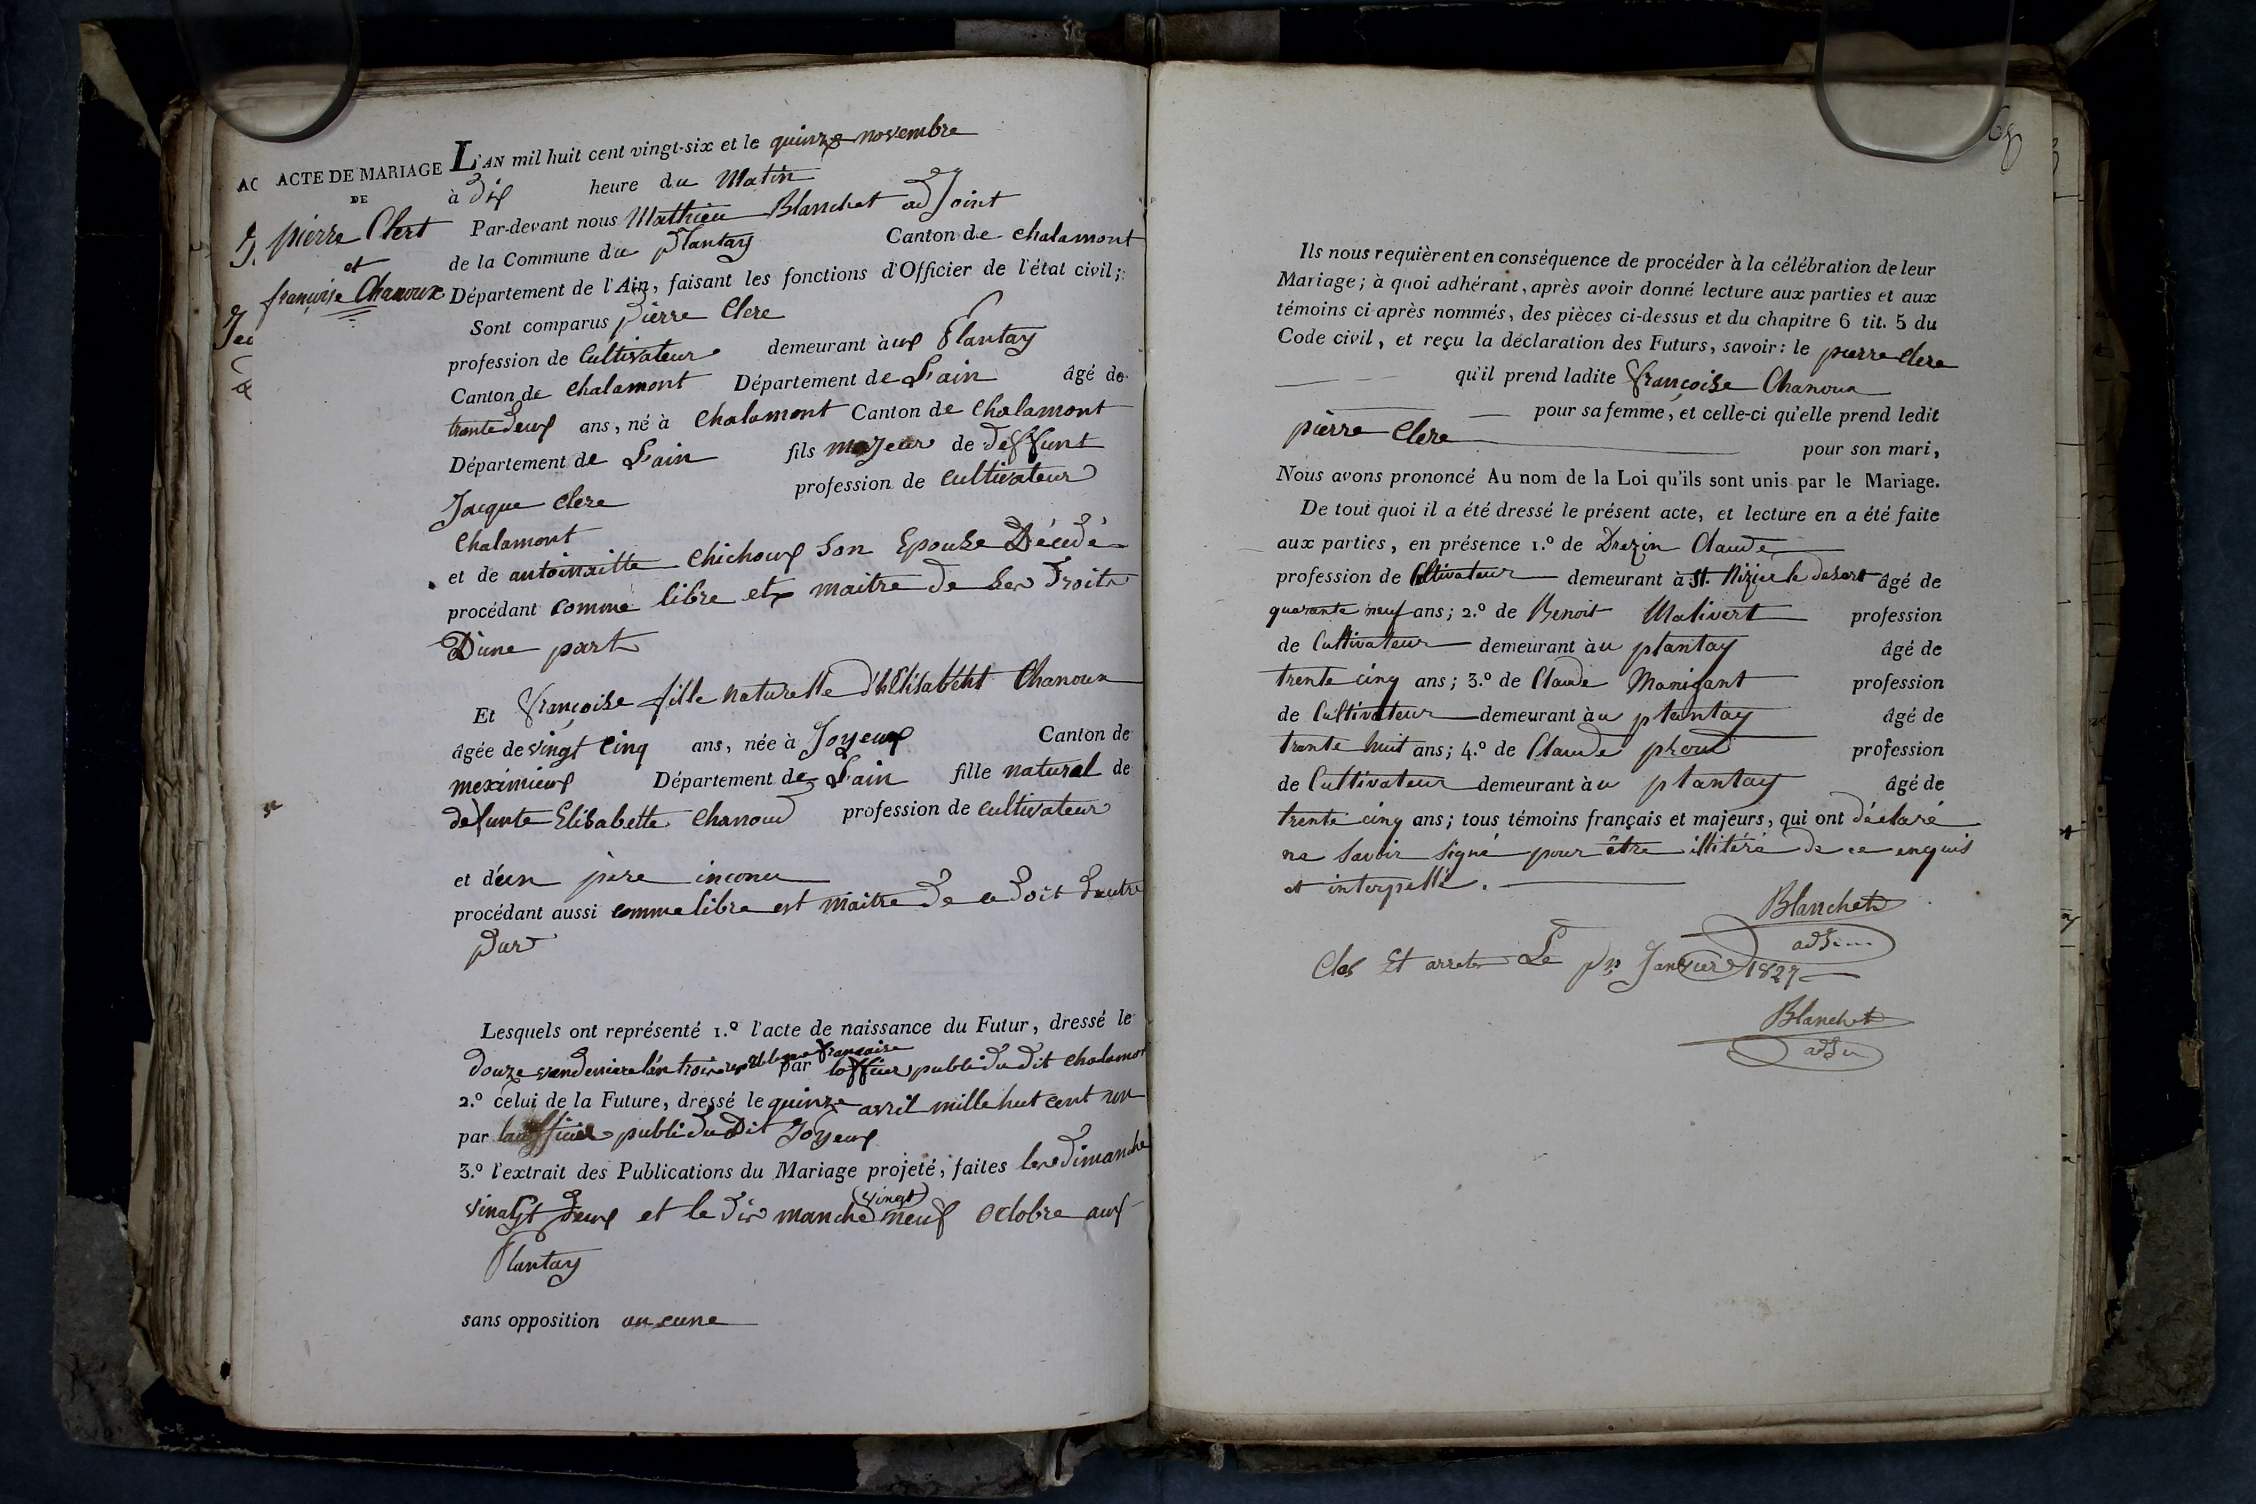 ACTE DE MARIAGE
DE
pierre Clert
et
françoise Chanoux
L'AN mil huit cent vingt-six et le quinze novembre
à dix heure du Matin
Par-devant nous Mathieu Blanchet adJoint
de la Commune du plantay Canton de chalamont
Département de l'Ain, faisant les fonctions d'Officier de l'état civil;
Sont comparus pierre Clerc
profession de Cultivateur demeurant à aux plantay
Canton de chalamont Département de L'ain âgé de
trante deux ans, né à chalamont Canton de chalamont
Département de L'ain fils majeur de deffunt
Jacque clerc profession de cultivateur
chalamont
et de antoinaitte chichoux son Epouse Décédé
procédant comme libre et maitre de ses Droits
D'une part
Et françoise fille naturelle d'hElisabeht Chanoux
âgée de vingt cinq ans, née à Joyeux Canton de
meximieux Département de L'ain fille natural de
defunte Elisabette chanoud profession de cultivateur
et d'un père inconu
procédant aussi comme libre est maitre de ce doit dautre
part
Lesquels ont représenté 1.º l'acte de naissance du Futur, dressé le
douze vendemiere l'an trois republique française par lofficier publi du dit chalamont
2.º celui de la Future, dressé le quinze avril mille huit cent non
par officier publi du Dit Joyeux
3.º l'extrait des Publications du Mariage projeté, faites les dimanche
vingt deux et le dis manche (vingt) neuf octobre aux
plantay
sans opposition aucune
68
Ils nous requièrent en conséquence de procéder à la célébration de leur
Mariage; à quoi adhérant, après avoir donné lecture aux parties et aux
témoins ci-après nommés, des pièces ci-dessus et du chapitre 6 tit. 5 du
Code civil, et reçu la déclaration des Futurs, savoir: le pierre clerc
qu'il prend ladite françoise Chanoux
pour sa femme, et celle-ci qu'elle prend ledit
pierre clerc pour son mari,
Nous avons prononcé Au nom de la Loi qu'ils sont unis par le Mariage.
De tout quoi il a été dressé le présent acte, et lecture en a été faite
aux parties, en présence 1.º de Drezin Claude
profession de Cltivateur demeurant à St. Nizier le desert âgé de
quarante neuf ans; 2.º de Benoit Malivert profession
de Cultivateur demeurant à u plantay âgé de
trente cinq ans; 3.º de Claude Manigant profession
de Cultivateur demeurant à u plantay âgé de
trante huit ans; 4.º de Claude proud profession
de Cultivateur demeurant à u plantay âgé de
trente cinq ans; tous témoins français et majeurs, qui ont déclaré
ne savoir signé pour être illitéré de ce enquis
et interpellé.
Blanchet
adJoint
Clos Et arreter Le pr Janvier 1827
Blanchet
adJoint